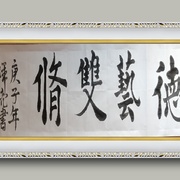 德藝雙脩
庚子年